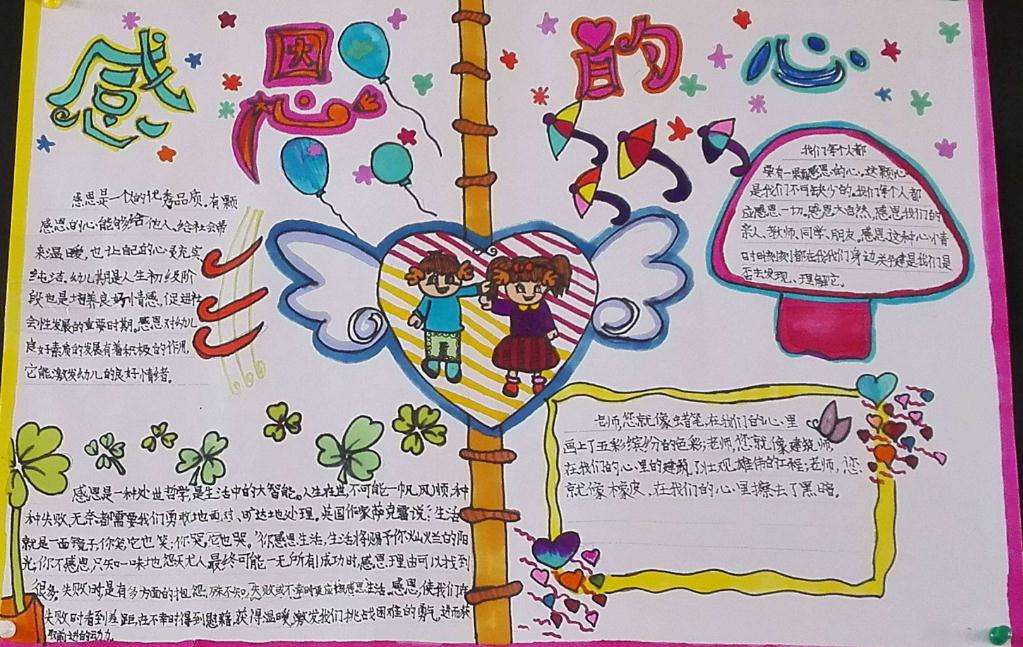 感恩的心
感恩是一个人的优秀品质。有颗
感恩的心能够给他人、给社会带
来温暖,也让自己的心灵充实
纯洁。幼儿期是人生初级阶
段也是培养良好情感、促进社
会性发展的重要时期。感恩对幼儿
良好素质的发展有着积极的作用,
它能激发幼儿的良好情绪。
我们每个人都
要有一颗感恩的心。这颗心
是我们不可缺少的。我们每个人都
应感恩一切。感恩大自然、感恩我们的
亲人、教师、同学、朋友。感恩这种心情
时时刻刻都在我们身边关键是我们是
否去发现、理解它。
老师,您就像蜡笔,在我们的心里
画上了五彩缤纷的色彩;老师,您就像建筑师,
在我们的心里的建筑了壮观雄伟的工程;老师,您
就像橡皮,在我们的心里擦去了黑暗。
感恩是一种处世哲学,是生活中的大智能。人生在世,不可能一帆风顺,种
种失败、无奈都需要我们勇敢地面对、旷达地处理。英国作家萨克雷说:"生活
就是一面镜子,你笑,它也笑;你哭,它也哭。"你感恩生活,生活将赐予你灿烂的阳
光,你不感恩,只知一味地怨天尤人,最终可能一无所有!成功时,感恩理由可以找到
很多;失败时
失败时看到差距,在不幸时得到慰藉、获得温暖,激发我们挑战困难的勇气,进而获
取前进的动力。